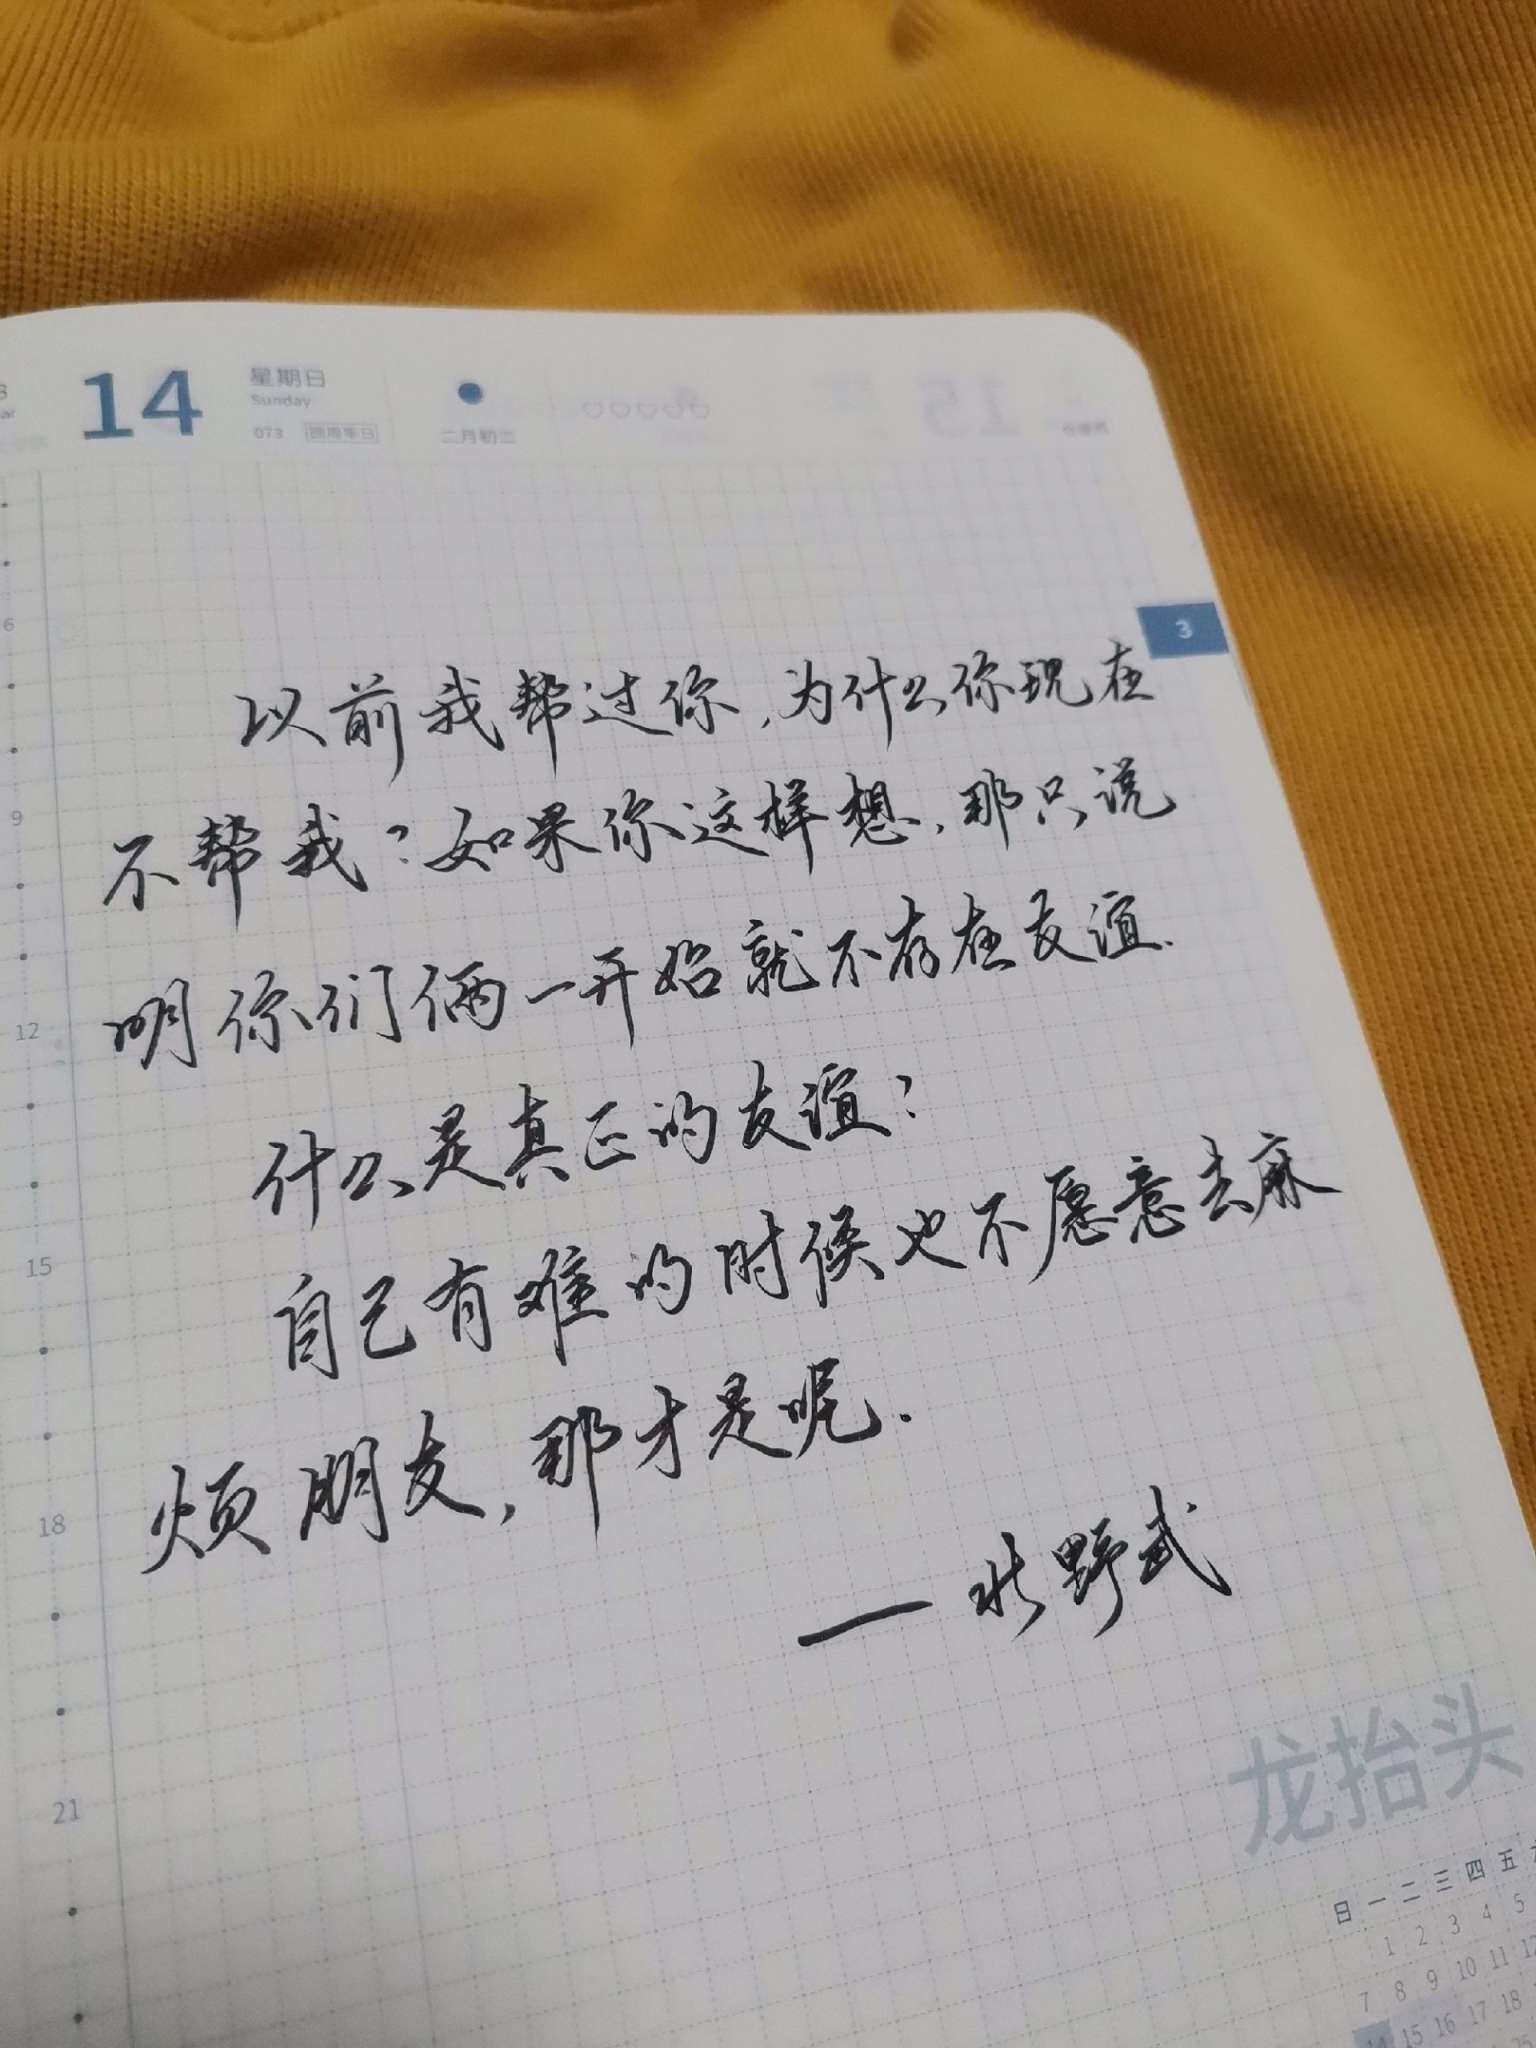 14
星期日
Sunday
073
二月初二
3
以前我帮过你,为什么你现在
不帮我?如果你这样想,那只说
明你们俩一开始就不存在友谊.
什么是真正的友谊?
自己有难的时候也不愿意去麻
烦朋友,那才是呢.
—北野武
6
9
12
15
18
21
龙抬头
日 一 二 三 四 五
1 2 3 4 5
7 8 9 10 11 12
14 15 16 17 18